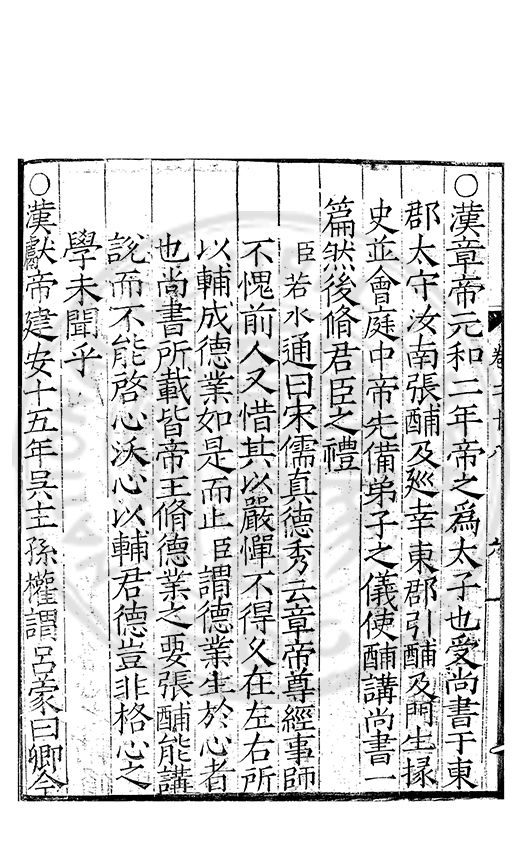 ○漢章帝元和二年帝之爲太子也受尚書于東
郡太守汝南張酺及廵幸東郡引酺及門生掾
史並會庭中帝先備弟子之儀使酺講尚書一
篇然後脩君臣之禮
臣若水通曰宋儒真德秀云章帝尊經事師
不愧前人又惜其以嚴憚不得久在左右所
以輔成德業如是而止臣謂德業生於心者
也尚書所載皆帝王脩德業之要張酺能講
說而不能啓心沃心以輔君德豈非格心之
學未聞乎
○漢獻帝建安十五年吳主孫權謂呂蒙曰卿今